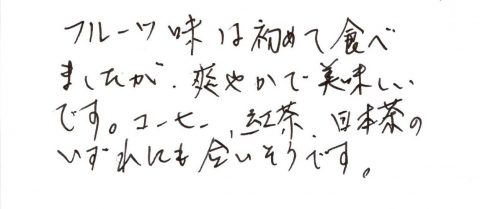 フルーツ味は初めて食べ
ましたが、爽やかで美味しい
です。コーヒー、紅茶、日本茶の
いずれにも合いそうです。